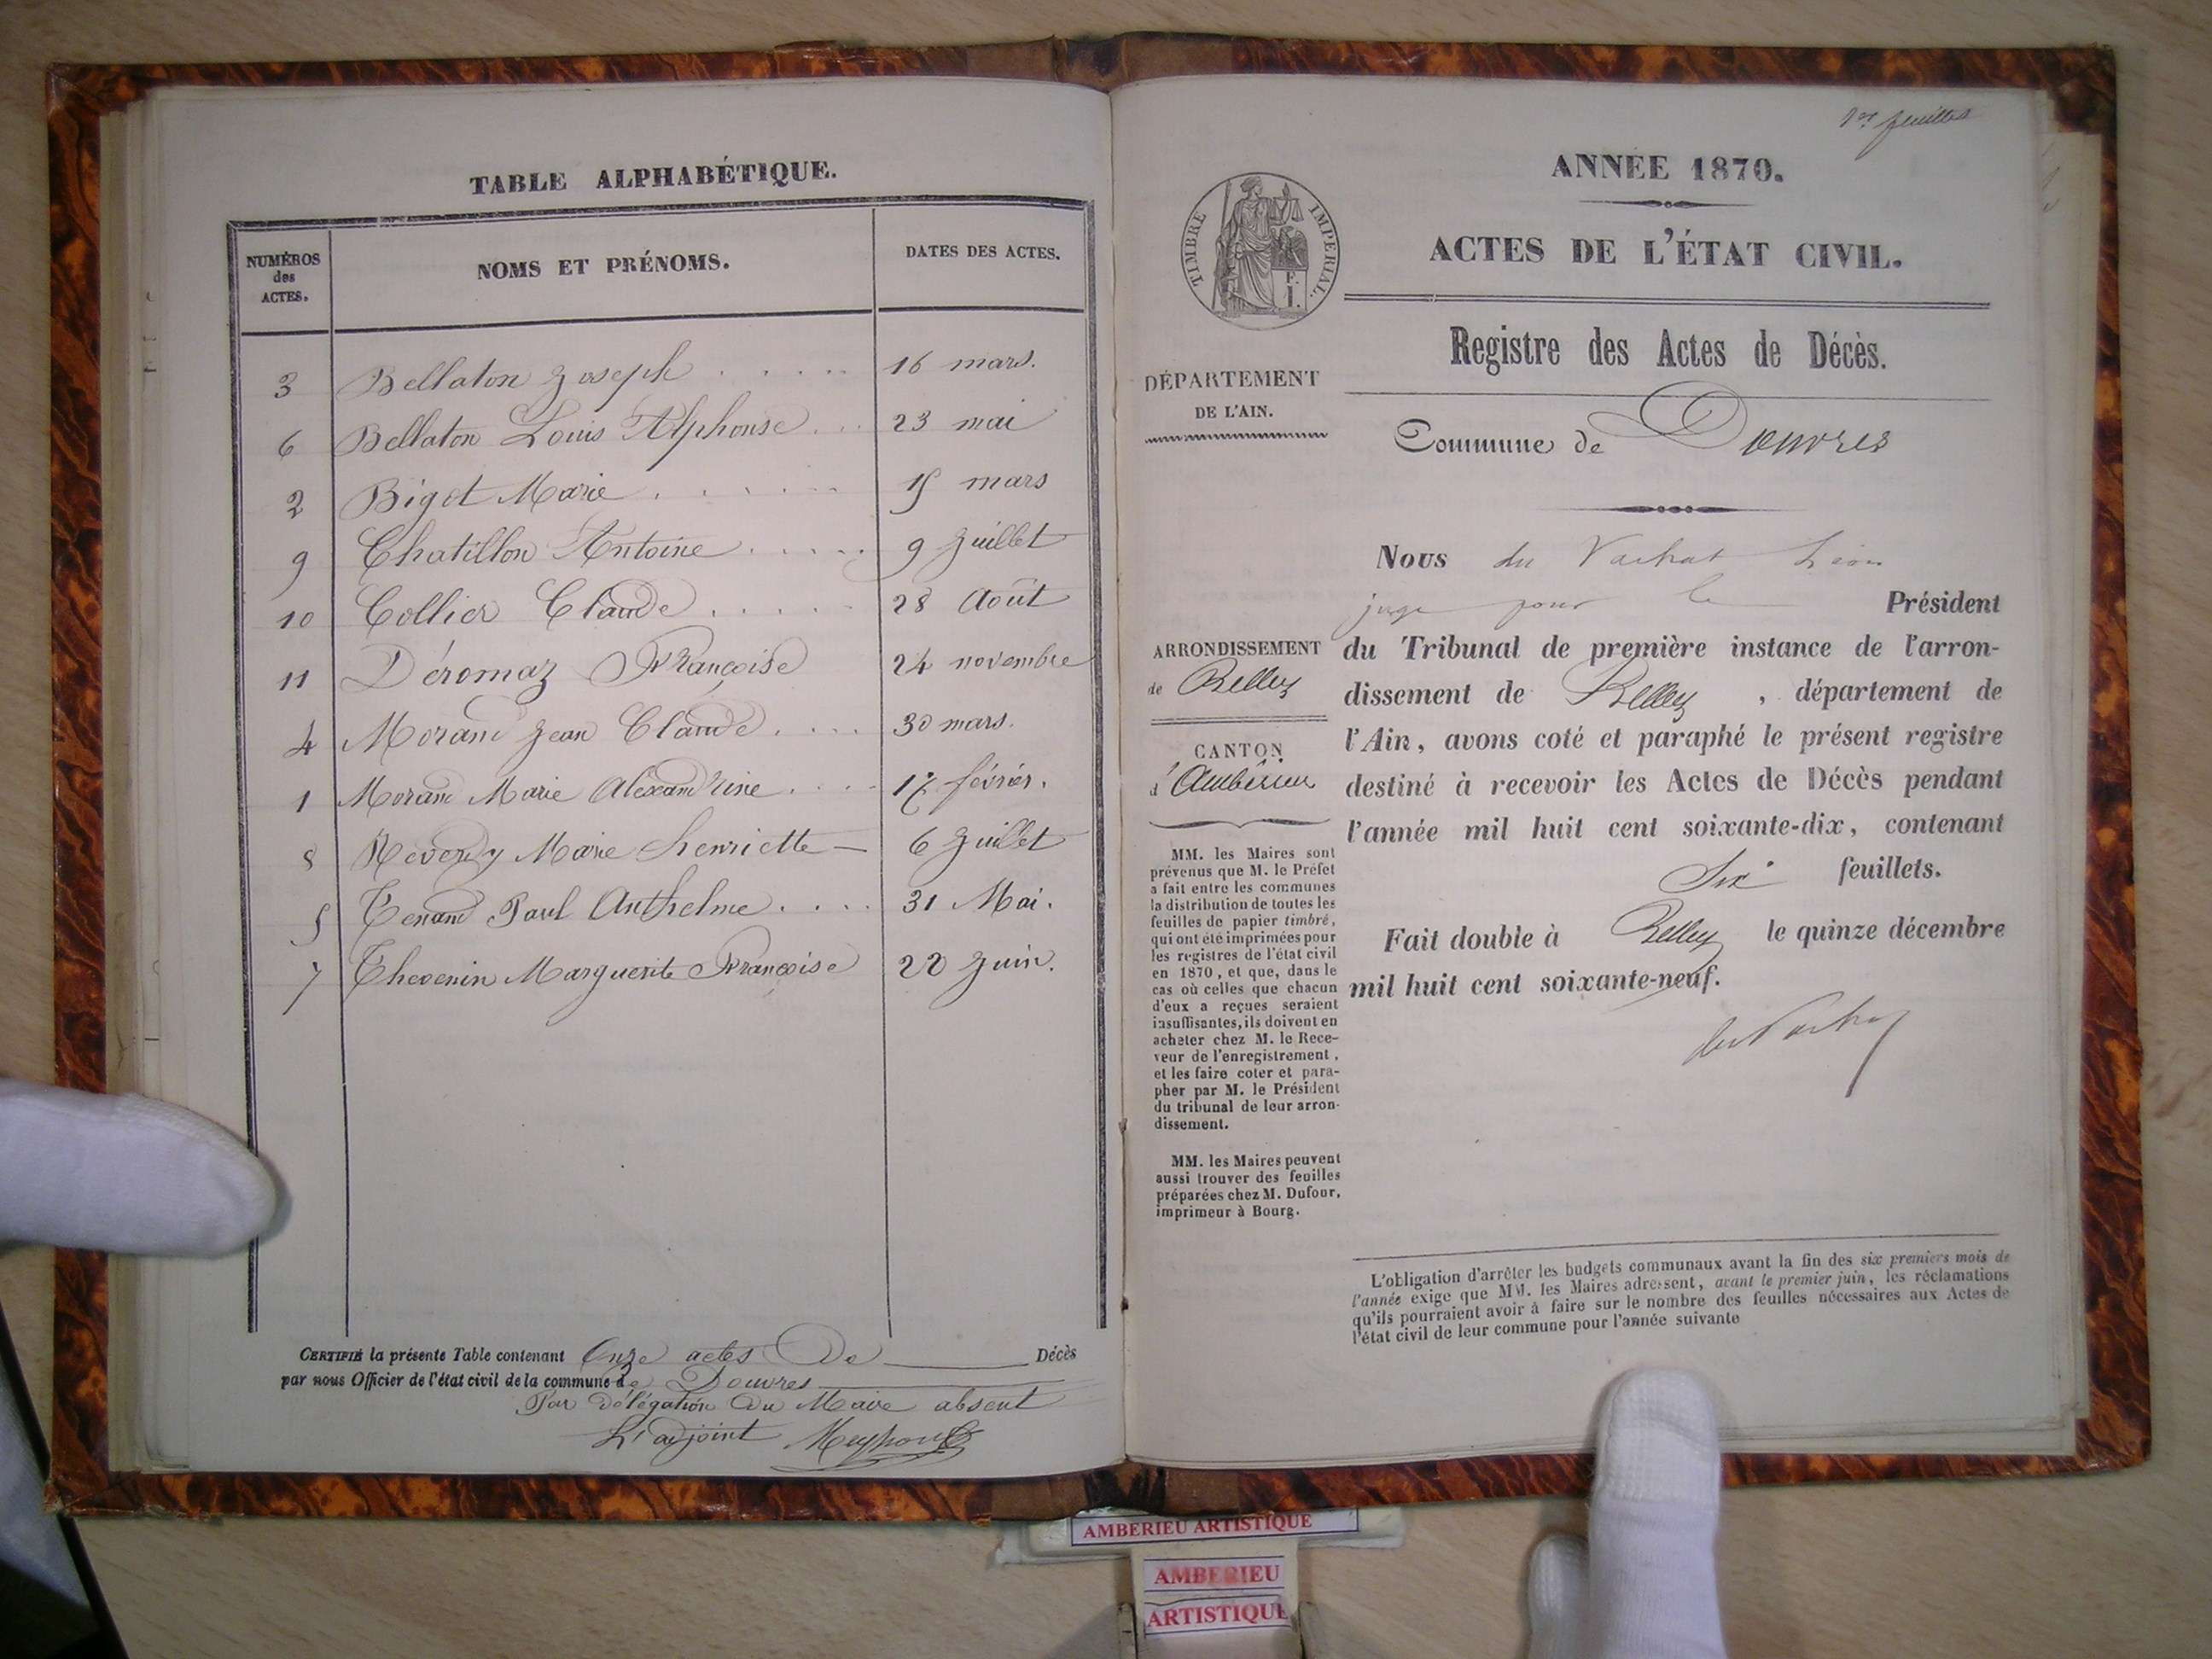 TABLE ALPHABÉTIQUE.
NUMÉROS des ACTES.
NOMS ET PRÉNOMS.
DATES DES ACTES.
3 Bellaton Joseph . . . . . 16 mars.
6 Bellaton Louis Alphonse . . . 23 mai
2 Bigot Marie . . . . . 15 mars
9 Chatillon Antoine . . . . . 9 Juillet
10 Collier Claude . . . . . 28 Août
11 Déromaz Françoise 24 novembre
4 Morand Jean Claude . . . . 30 mars.
1 Morand Marie Alexandrine . . . . 17 février.
8 Reverdy Marie henriette — 6 Juillet
5 Tenand Paul Anthelme . . . . 31 Mai.
7 Thevenin Marguerite Françoise 22 Juin.
CERTIFIÉ la présente Table contenant Onze actes De Décès
par nous Officier de l'état civil de la commune de Douvres
Par délégation du Maire absent
L'adjoint
1er feuillet
ANNÉE 1870.
TIMBRE IMPERIAL.
E. I.
ACTES DE L'ÉTAT CIVIL.
Registre des Actes de Décès.
DÉPARTEMENT
DE L'AIN.
Commune de Douvres
Nous du Vachat Léon
juge pour le Président
ARRONDISSEMENT
de Belley
CANTON
d'Ambérieu
du Tribunal de première instance de l'arron-
dissement de Belley , département de
l'Ain, avons coté et paraphé le présent registre
destiné à recevoir les Actes de Décès pendant
l'année mil huit cent soixante-dix, contenant
Six feuillets.
Fait double à Belley le quinze décembre
mil huit cent soixante-neuf.
du Vachat
MM. les Maires sont
prévenus que M. le Préfet
a fait entre les communes
la distribution de toutes les
feuilles de papier timbré,
qui ont été imprimées pour
les registres de l'état civil
en 1870, et que, dans le
cas où celles que chacun
d'eux a reçues seraient
insuffisantes, ils doivent en
acheter chez M. le Rece-
veur de l'enregistrement,
et les faire coter et para-
pher par M. le Président
du tribunal de leur arron-
dissement.
MM. les Maires peuvent
aussi trouver des feuilles
préparées chez M. Dufour,
imprimeur à Bourg.
L'obligation d'arrêter les budgets communaux avant la fin des six premiers mois de
l'année exige que MM. les Maires adressent, avant le premier juin, les réclamations
qu'ils pourraient avoir à faire sur le nombre des feuilles nécessaires aux Actes de
l'état civil de leur commune pour l'année suivante
AMBERIEU ARTISTIQUE
AMBERIEU
ARTISTIQUE